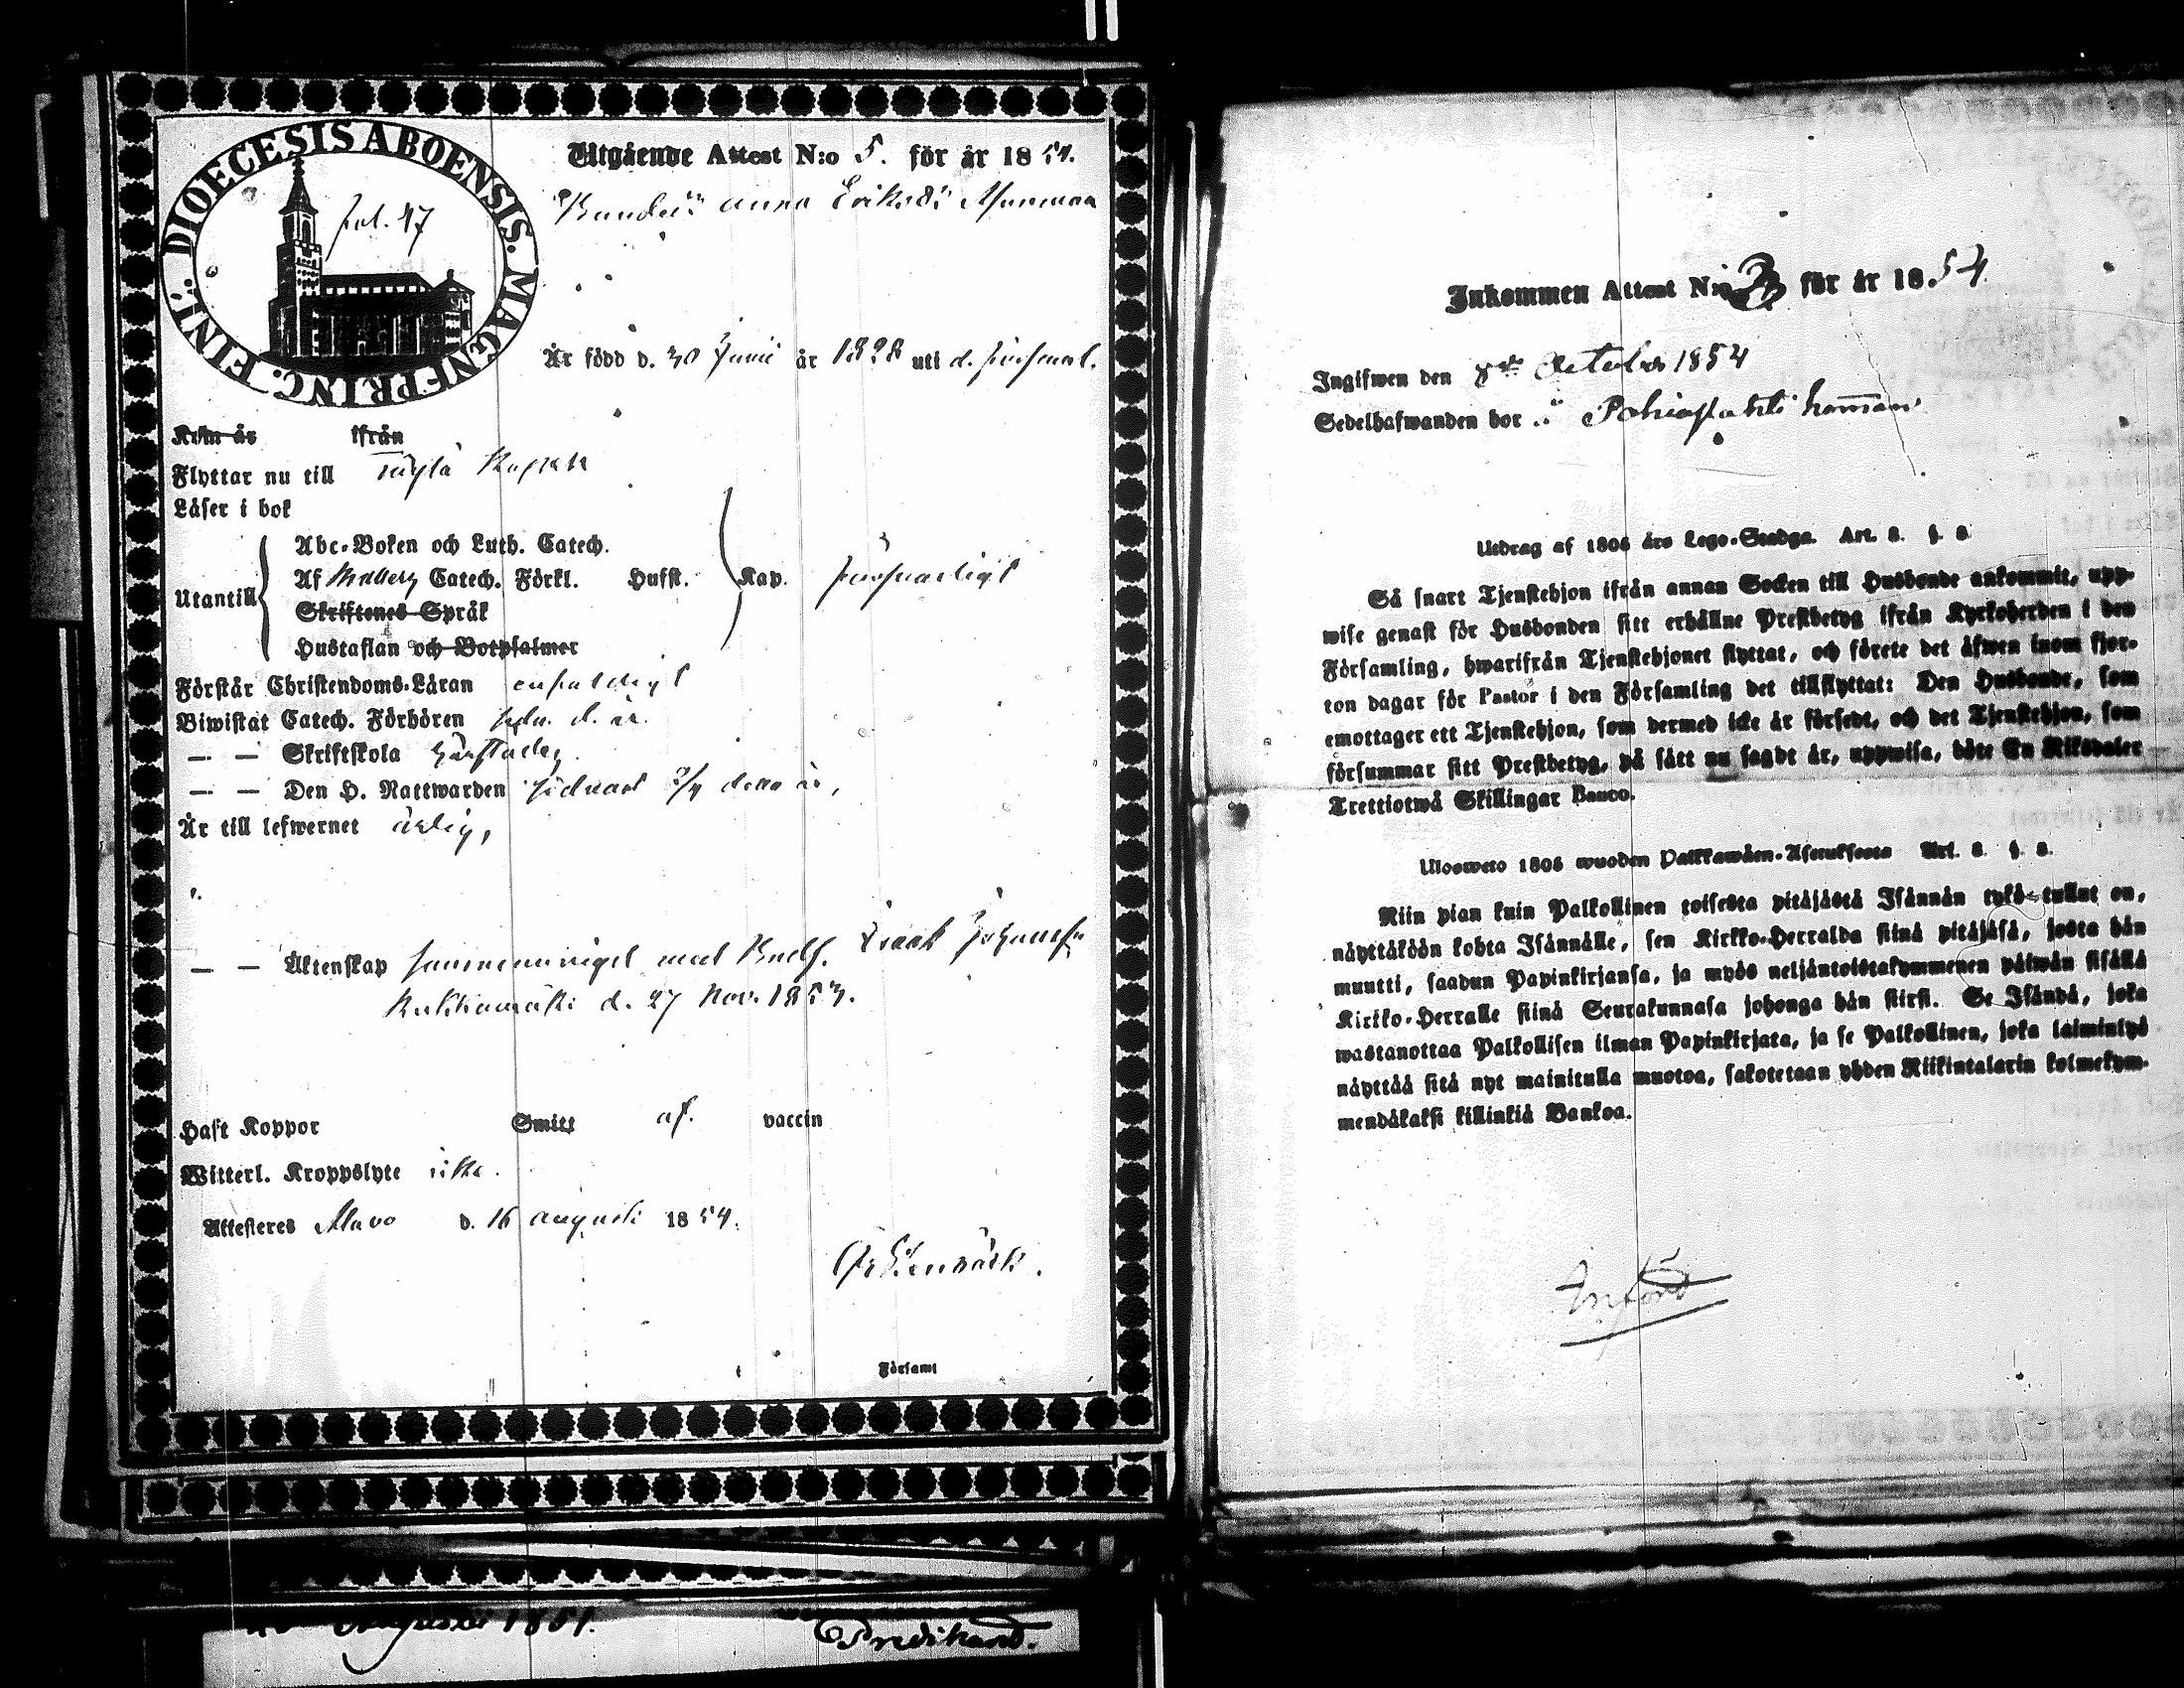 DIOECESIS ABOENSIS. MAGNI PRINC. FINL.
fol. 47
Utgående Attest N:o 5. för år 1854.
anna Eriksdr
Är född d. 30 Junii år 1828 uti d. församl.
Kom år ifrån
Flyttar nu till
Läser i bok
Abc-Boken och Luth. Catech.
Utantill Af Catech. Förkl. Hufst. Kap. försvarligt
Skriftenes Språk
Hustaflan och Botpsalmer
Förstår Christendoms-Läran enfaldigt
Biwistat Catech. Förhören sedn. d. år.
— — Skriftskola
— — Den H. Nattwarden sednast denna år,
Är till lefwernet ärlig,
— — Äktenskap sammanvigd med Isaak Johansson
d. 27 Nov. 1853.
Haft Koppor Smitt af. vaccin
Witterl. Kroppslyte icke.
Attesteres Alavo d. 16 augusti 1854.
Församl
Augusti 1851.
Predikand.
Inkommen Attest N:o 3 för år 1854
Ingifwen den 8de October 1854
Sedelhafwanden bor å
Utdrag af 1805 års Lego-Stadga. Art. 2. §. 8
Så snart Tjenstehjon ifrån annan Socken till Husbonde ankommit, upp-
wise genast för Husbonden sitt erhållne Prestbetyg ifrån Kyrkoherden i den
Församling, hwarifrån Tjenstehjonet flyttat, och förete det äfwen inom fjor-
ton dagar för Pastor i den Församling det tillflyttat: Den Husbonde, som
emottager ett Tjenstehjon, som dermed icke är försedt, och det Tjenstehjon, som
försummar sitt Prestbetyg, på sätt nu sagdt är, uppwisa, böte En Riksdaler
Trettiotwå Skillingar Banco.
Ulosweto 1805 wuoden Palkkawäen-Asetuksesta Art. 2. §. 8.
Niin pian kuin Palkollinen toisesta pitäjästä Isännän tykö tullut on,
näyttäköön kohta Isännälle, sen Kirkko-Herralda siinä pitäjäsä, josta hän
muutti, saadun Papinkirjansa, ja myös neljäntoistakymmenen päiwän sisällä
Kirkko-Herralle siinä Seurakunnasa johonga hän siirsi. Se Isändä, joka
wastanottaa Palkollisen ilman Papinkirjata, ja se Palkollinen, joka laiminlyö
näyttää sitä nyt mainitulla muotoa, sakotetaan yhden Riikintalarin kolmekym-
mendäkaksi killinkiä Bankoa.
Införd